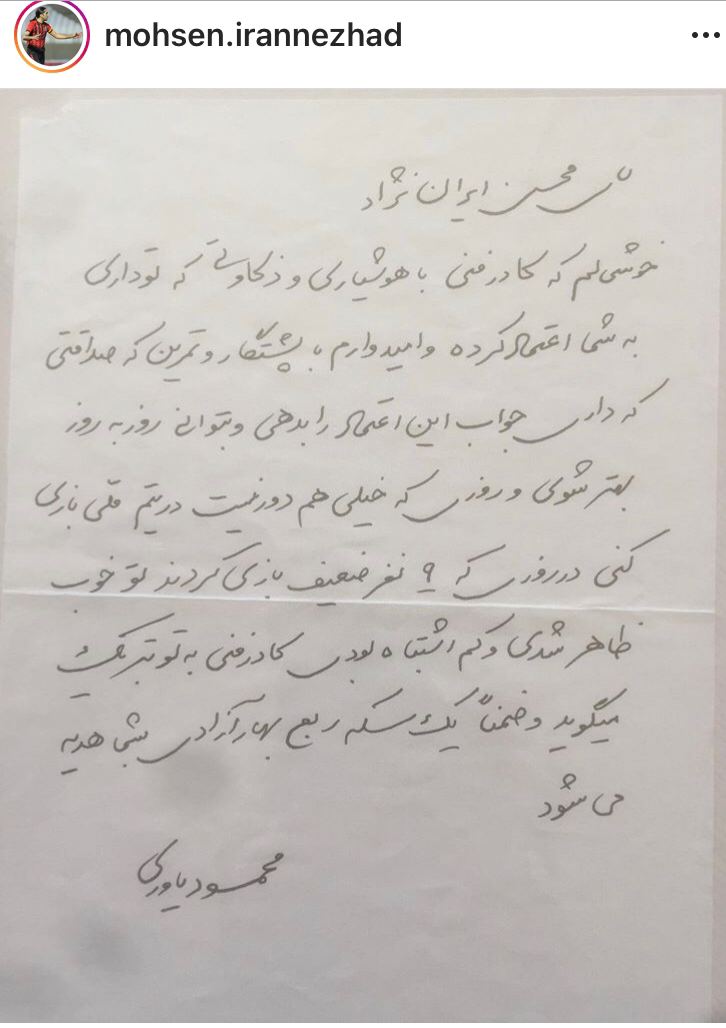 mohsen.irannezhad
محسن ایران نژاد
خوشحالم که کادر فنی با هوشیاری و ذکاوتی که تو داری
به شما اعتماد کرده و امیدوارم با پشتکار و تمرین که صداقتی
که داری جواب این اعتماد را بدهی و بتوانی روز به روز
بهتر شوی و روزی که خیلی هم دور نیست در تیم ملی بازی
کنی در روزی که ۹ نفر ضعیف بازی کردند تو خوب
ظاهر شدی و کم اشتباه بودی کادر فنی به تو تبریک
میگوید و ضمناً یک سکه ربع بهار آزادی بشما هدیه
می شود
محمود یاوری